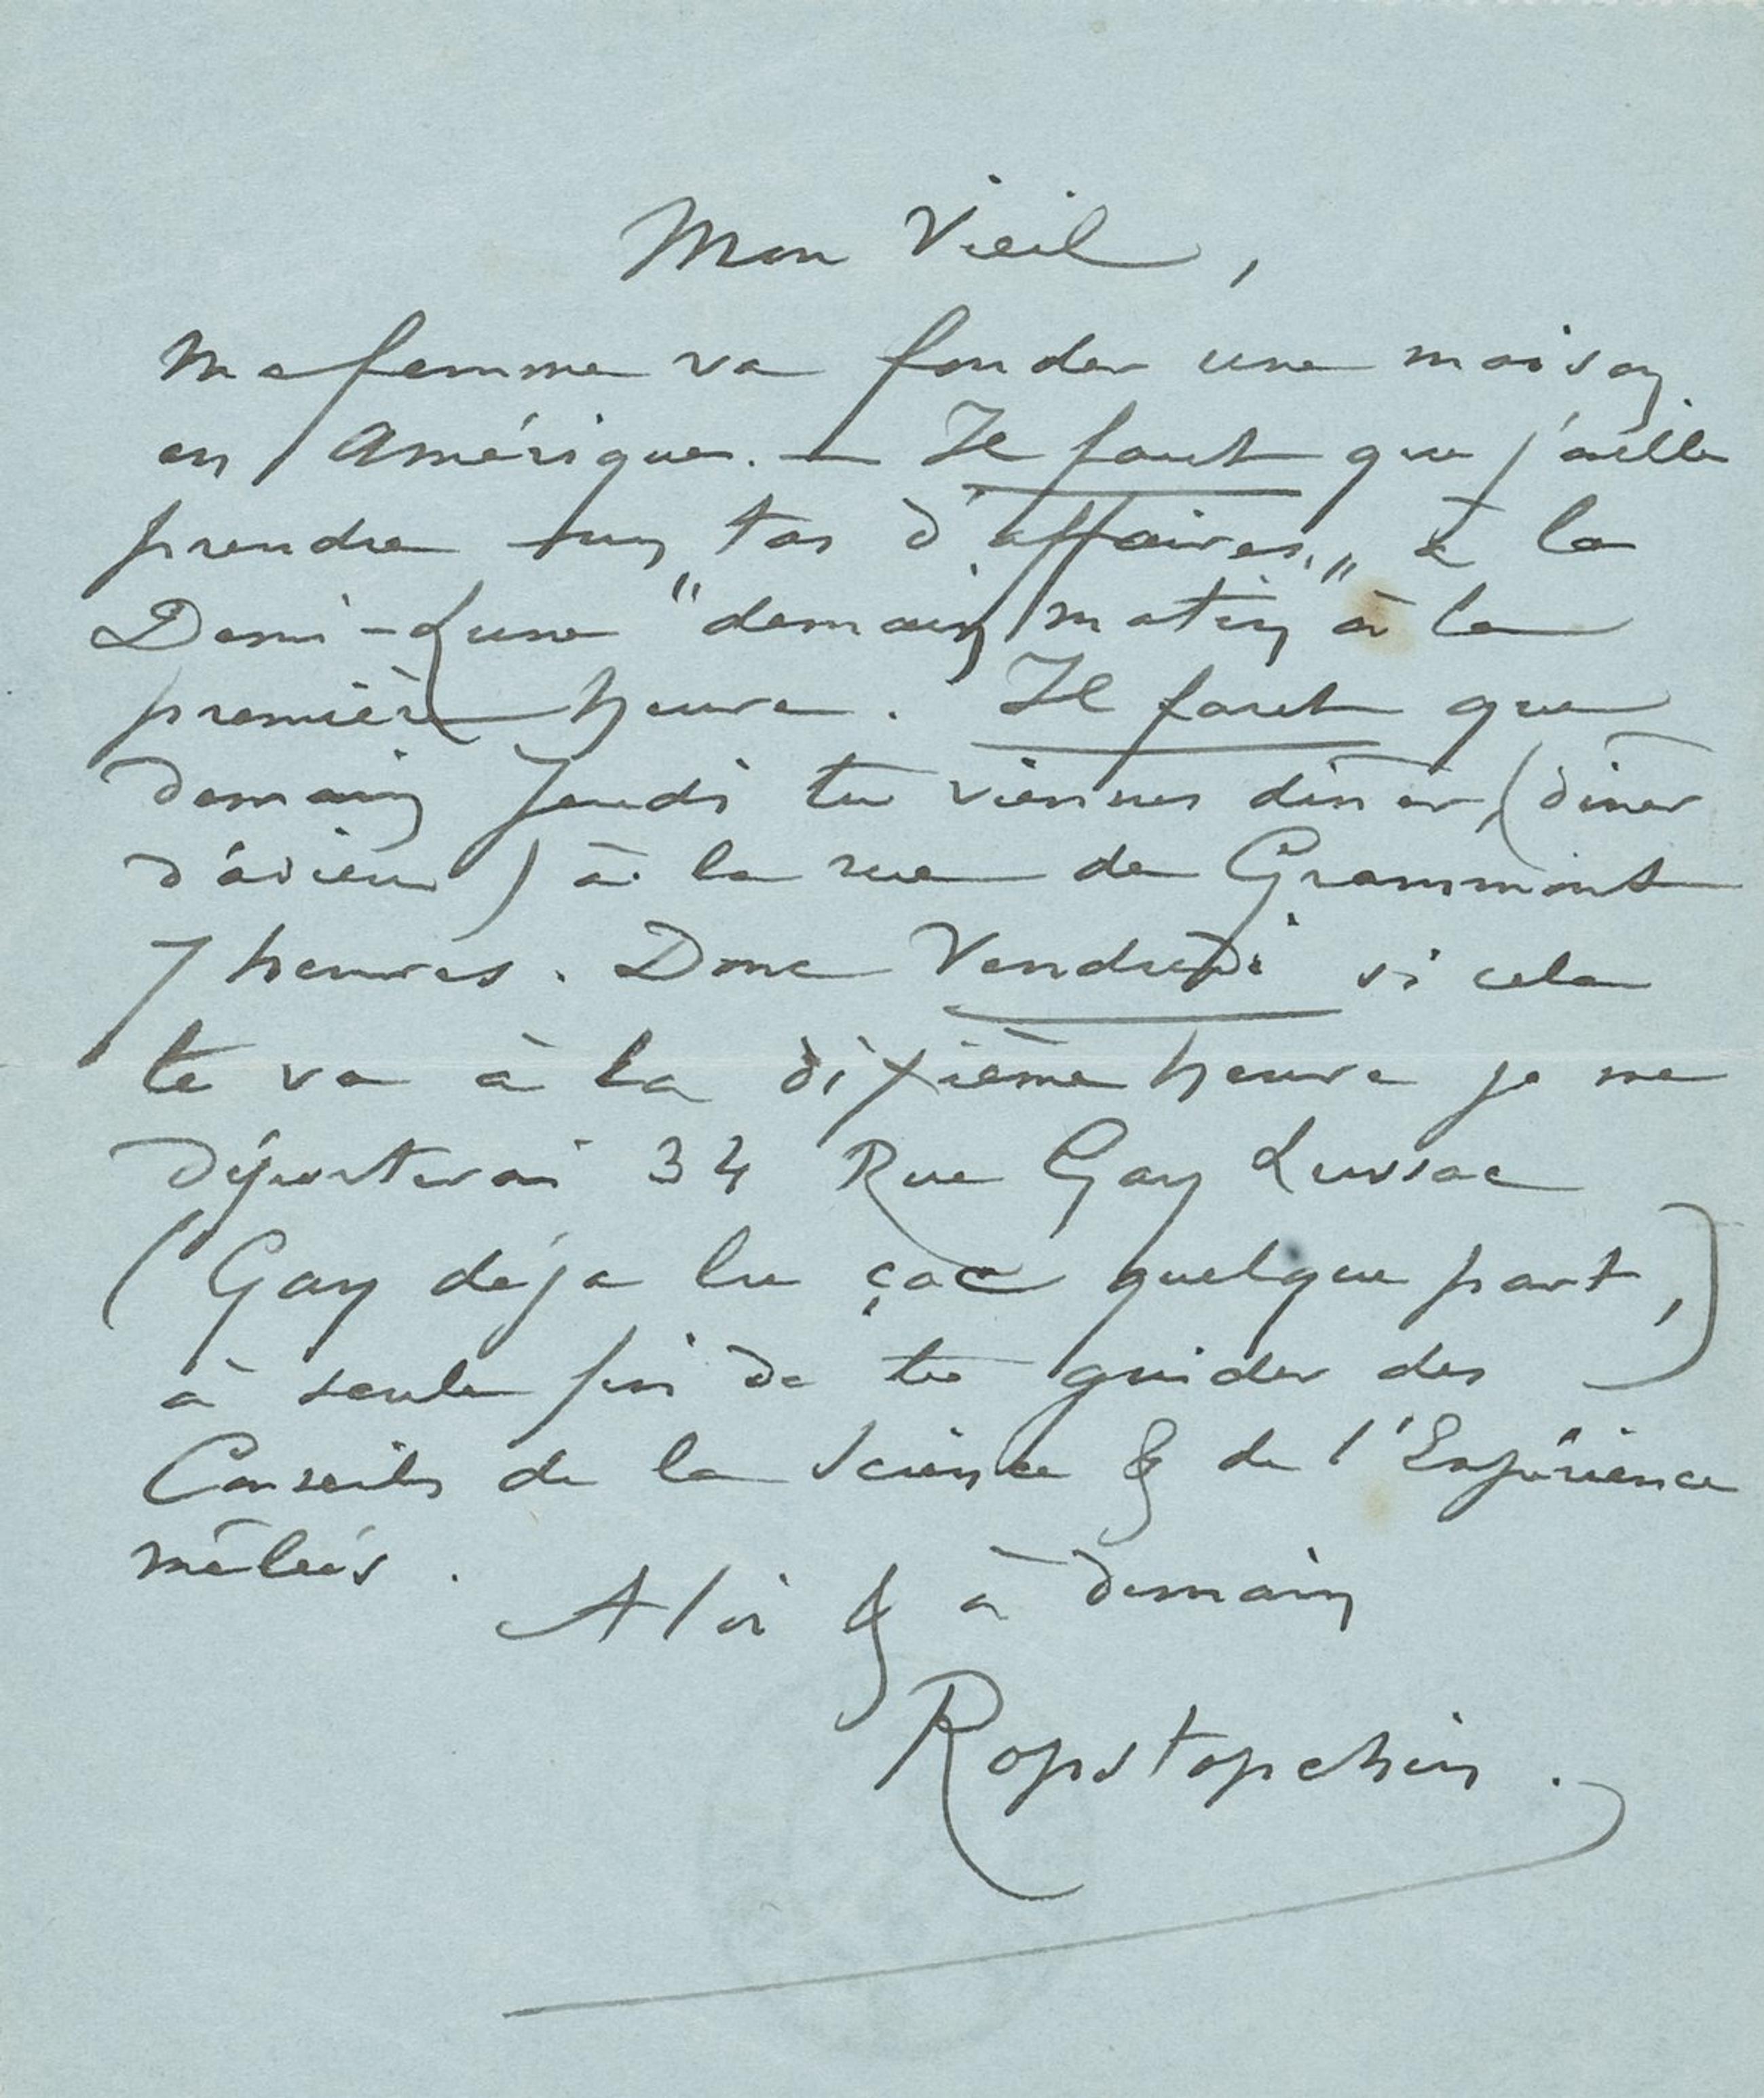 Mon Vieil,
Ma femme va fonder une maison
en Amérique. — Il faut que j'aille
prendre un tas d'affaires,,, à la
Demi-Lune "demain matin à la
première heure. Il faut que
demain Jeudi tu viennes dîner, (dîner
d'adieu) à la rue de Grammont
7 heures. Donc Vendredi si cela
te va à la dixième heure je me
déporterai 34 Rue Gay Lussac
(Gay déja lu çac quelque part,)
à seule fin de te guider des
Conseils de la Science & de l'Expérience
mêlés.
A toi & à demain
Ropstopchin.